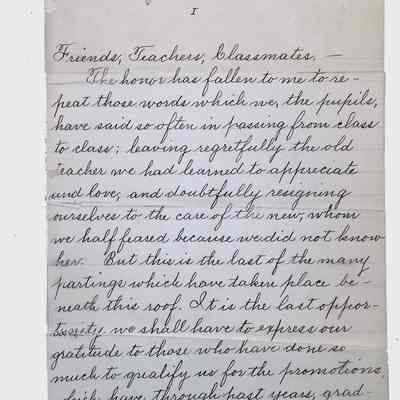 I
Friends, Teachers, Classmates. —
The honor has fallen to me to re-
peat those words which we, the pupils,
have said so often in passing from class
to class; leaving regretfully the old
teacher we had learned to appreciate
and love, and doubtfully resigning
ourselves to the care of the new, whom
we half feared because we did not know
her. But this is the last of the many
partings which have taken place be-
neath this roof. It is the last oppor-
tunity we shall have to express our
gratitude to those who have done so
much to qualify us for the promotions,
which have, through past years, grad-